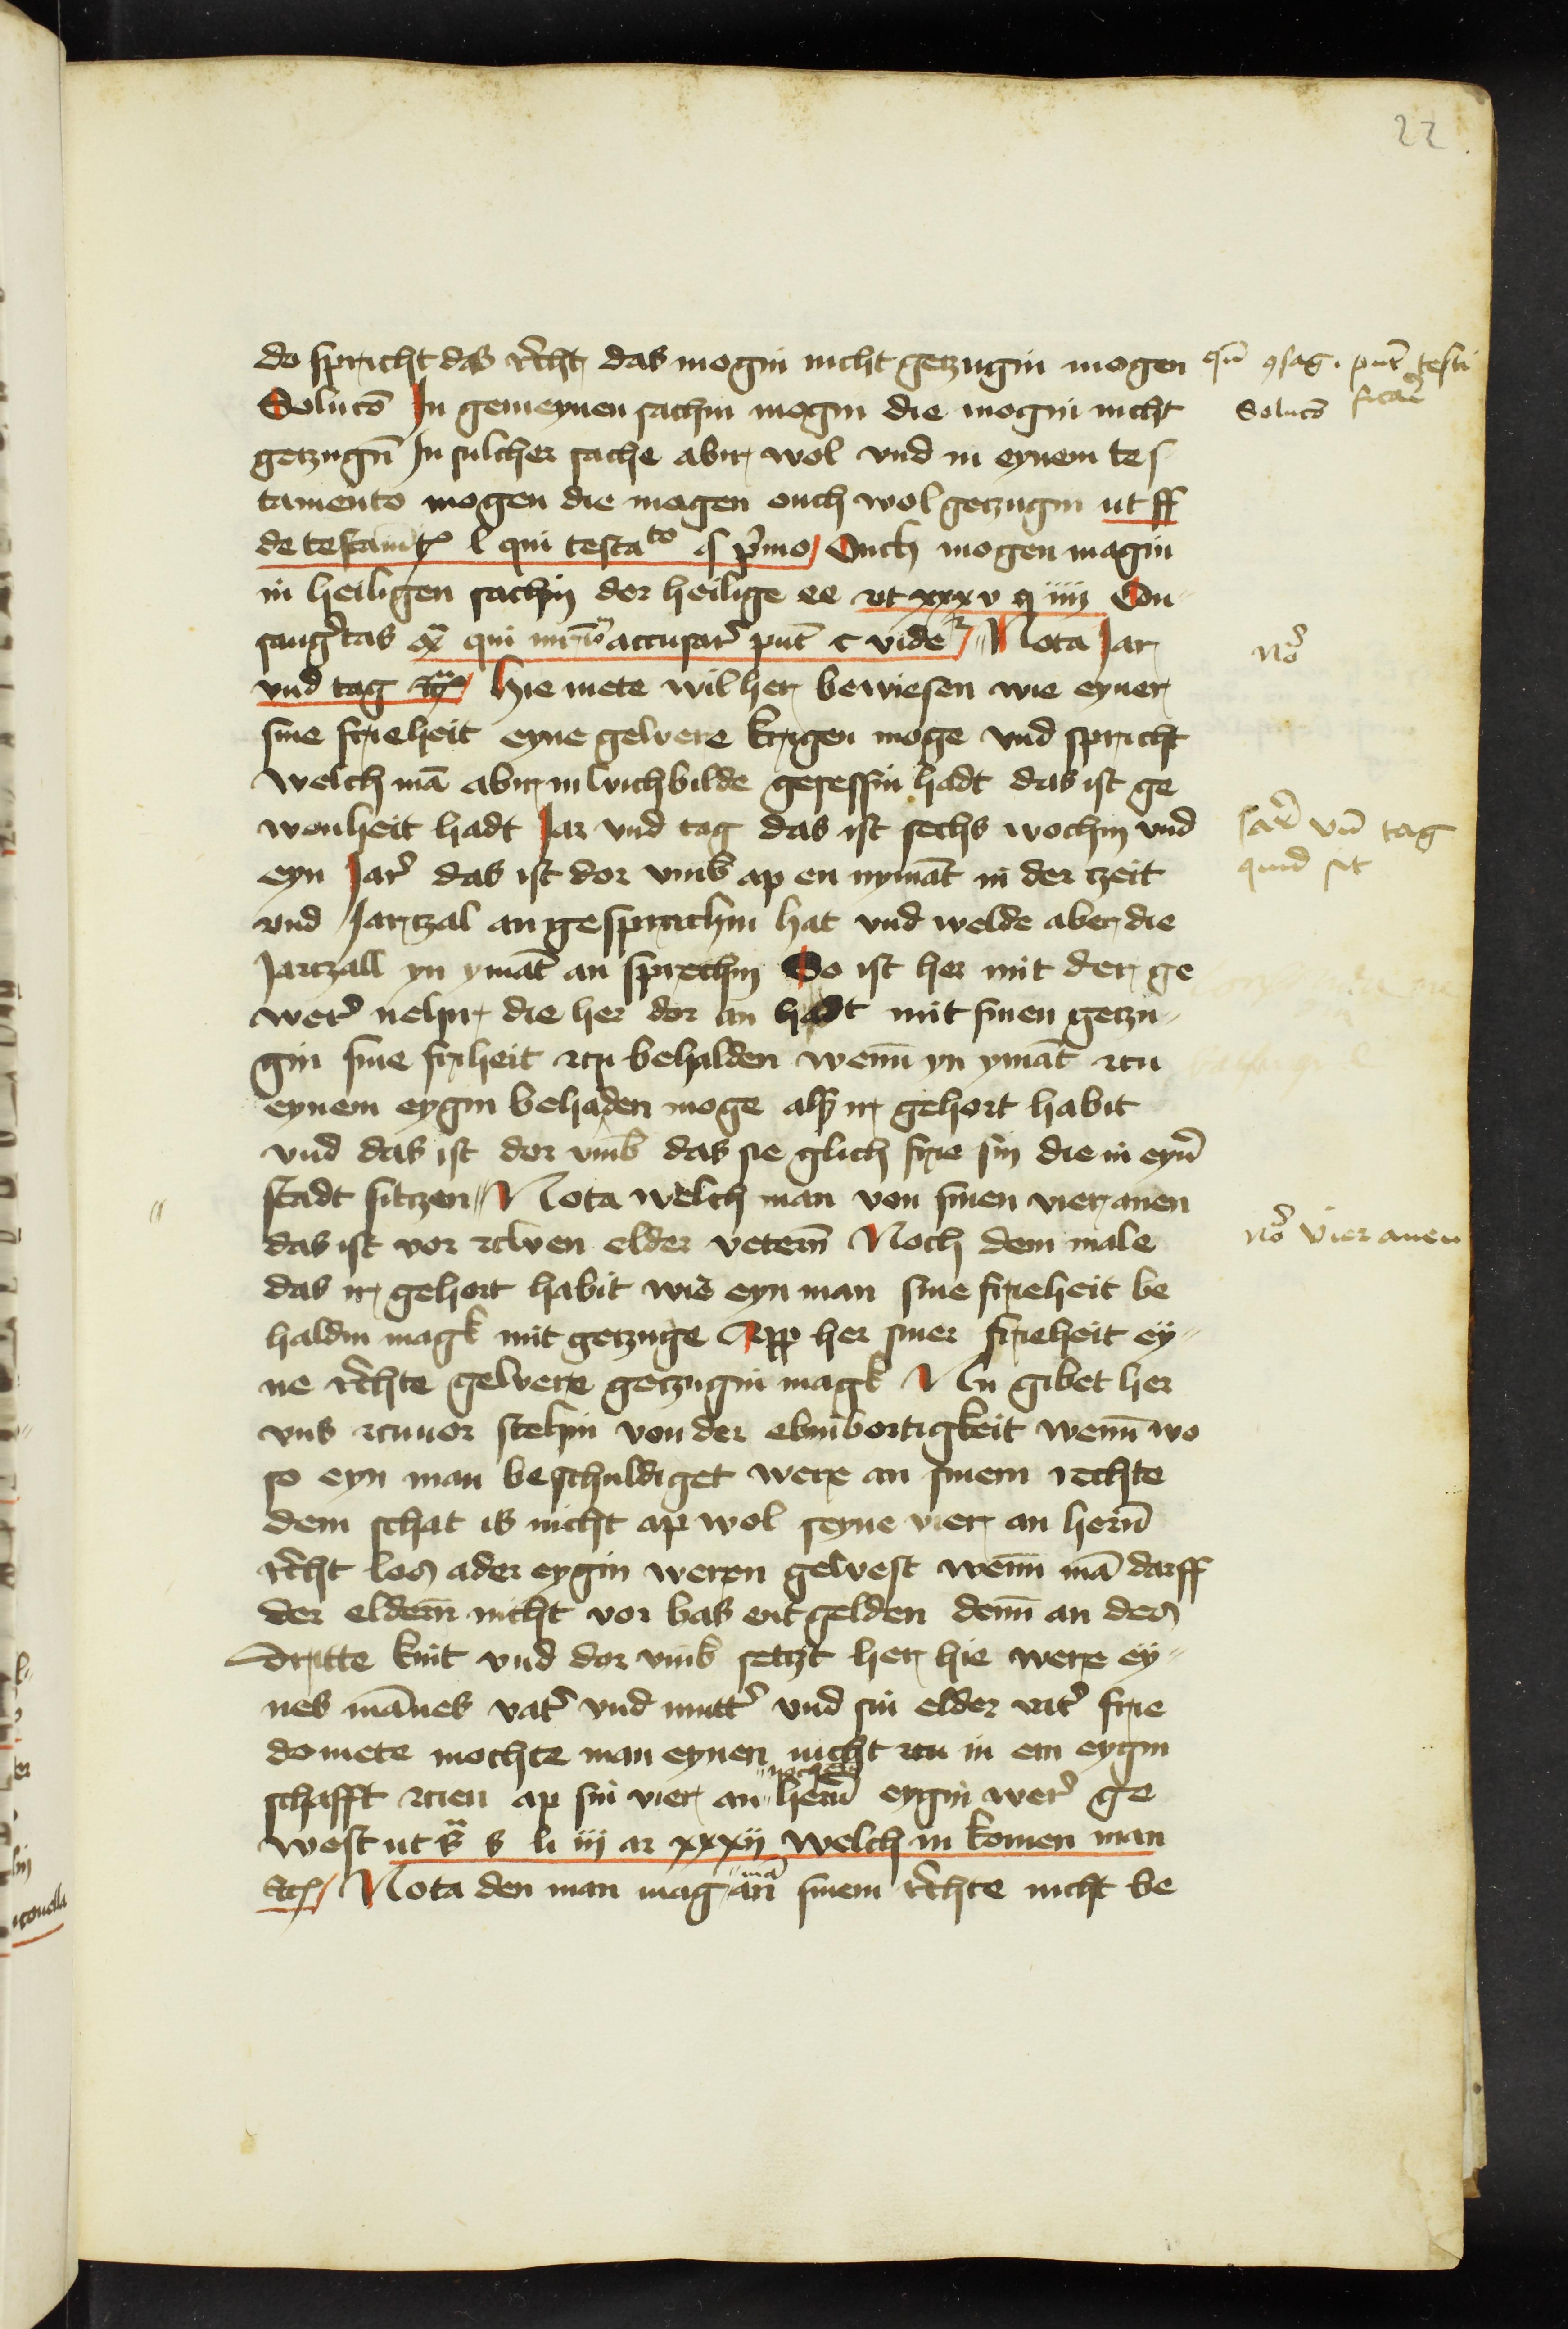 22
do spricht das rͤcht das mogin nicht getzugin mogen
Solucō In gemeynen sachin mogin die mogin nicht
getzugn̄ In sulcher sache abir wol vnd in eynem tes
tamento mogen die magen ouch wol getzugin ut ff
de testamt l qui testato § pͥmo Ouch mogen magin
in heiligen sachin der heilige ee vt xxxv q iiij Con-
sangͥtas qui accusarͤ put c videtr Nota Jar
vnd tag Hie mete wil her bewiesen wie eyner
sine frieheit eyne gewere krigen moge vnd spricht
welch mā abir in wichbilde gesessin hadt das ist ge
wonheit hadt Jar vnd tag das ist sechs wochin vnd
eyn Jar das ist dor vmb ap en nymāt in der tzeit
vnd Jartzal an gesprachin hat vnd welde aber die
Jartzall yn ymāt an sprechin So ist her mit der ge
werͤ nehir die her dor an hadt mit sinen getzu-
gin sine friheit tzu behalden wenn̄ yn ymāt tzu
eynem eygin behaden moge als ir gehort habit
vnd das ist dor vmb das sie glich frie sin die in eynͤ
stadt sitzen Nota welch man von sinen vier anen
das ist vor tzwen elder vetern̄ Noch dem male
das ir gehort habit wie eyn man sine frieheit be
haldin magk mit getzuge App her siner frieheit ey-
ne rͤchte gewere getzugin magk Nu gibet her
vns tzuuor stehin von der ebinbortigkeit wenn̄ wo
so eyn man beschuldiget were an sinem rechte
dem schat is nicht ap wol seyne vier an hern̄
rͤcht los ader eygin weren gewest wenn̄ mā darff
der eldern̄ nicht vor bas entgelden denn̄ an des
dritte knit vnd dor vmb setzt her hie were ey-
nes mānes vatͤ vnd muttͤ vnd sin elder vatͤ frie
domete mochte man eynen nicht tzu in em eygin
schafft tzien ap sin vier an hern̄ eygin werͤ ge
west ut s̄ li iij ar xxxij welch in komen man
etc Nota den man mag mā an̄ sinem rͤchte nicht be
qn̄ ꝯsag. put testi
ficarͤ
Solucō
noͣ
Jarͤ vn̄ tag
quid sit
noͣ vier anen